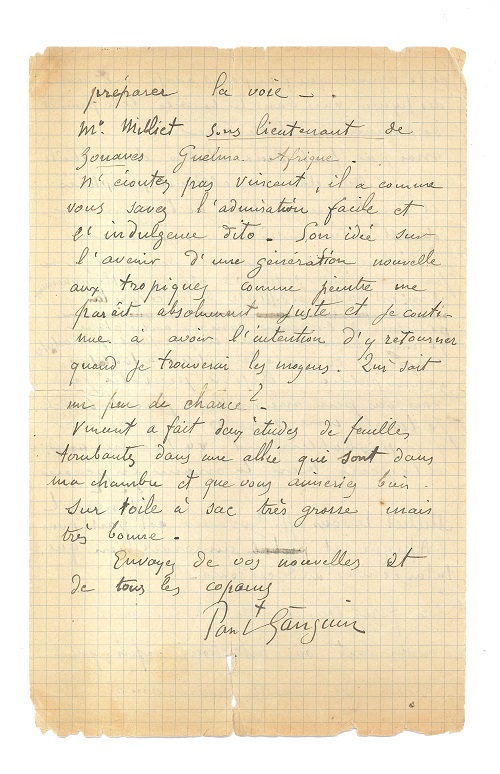 préparer la voie — .
Mr Milliet sous lieutenant de
Zouaves Guelma Afrique.
N'écoutez pas Vincent, il a comme
vous savez l'admiration facile et
l'indulgence dito. Son idée sur
l'avenir d'une génération nouvelle
aux tropiques comme peintre me
paraît absolument juste et je conti-
nue à avoir l'intention d'y retourner
quand je trouverai les moyens. Qui sait
un peu de chance?.
Vincent a fait deux études de feuilles
tombantes dans une allée qui sont dans
ma chambre et que vous aimeriez bien.
Sur toile à sac très grosse mais
très bonne.
Envoyez de vos nouvelles et
de tous les copains
Paul Gauguin